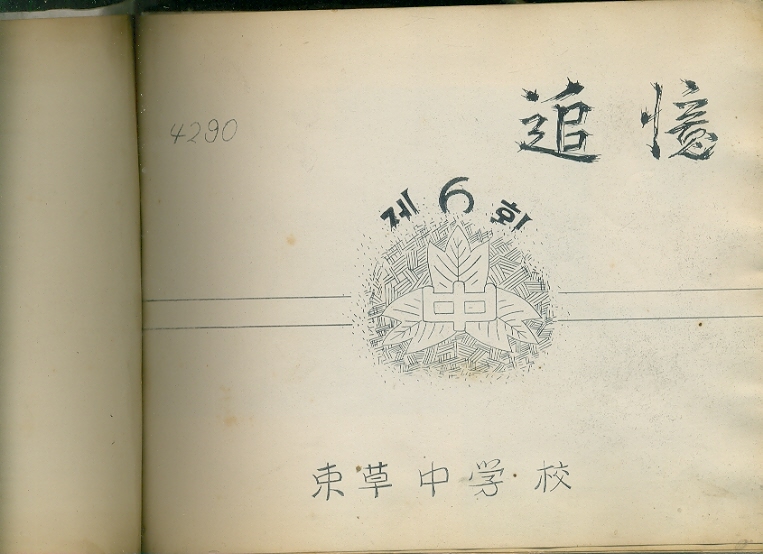 追憶
4290
제6회
中
束草中学校